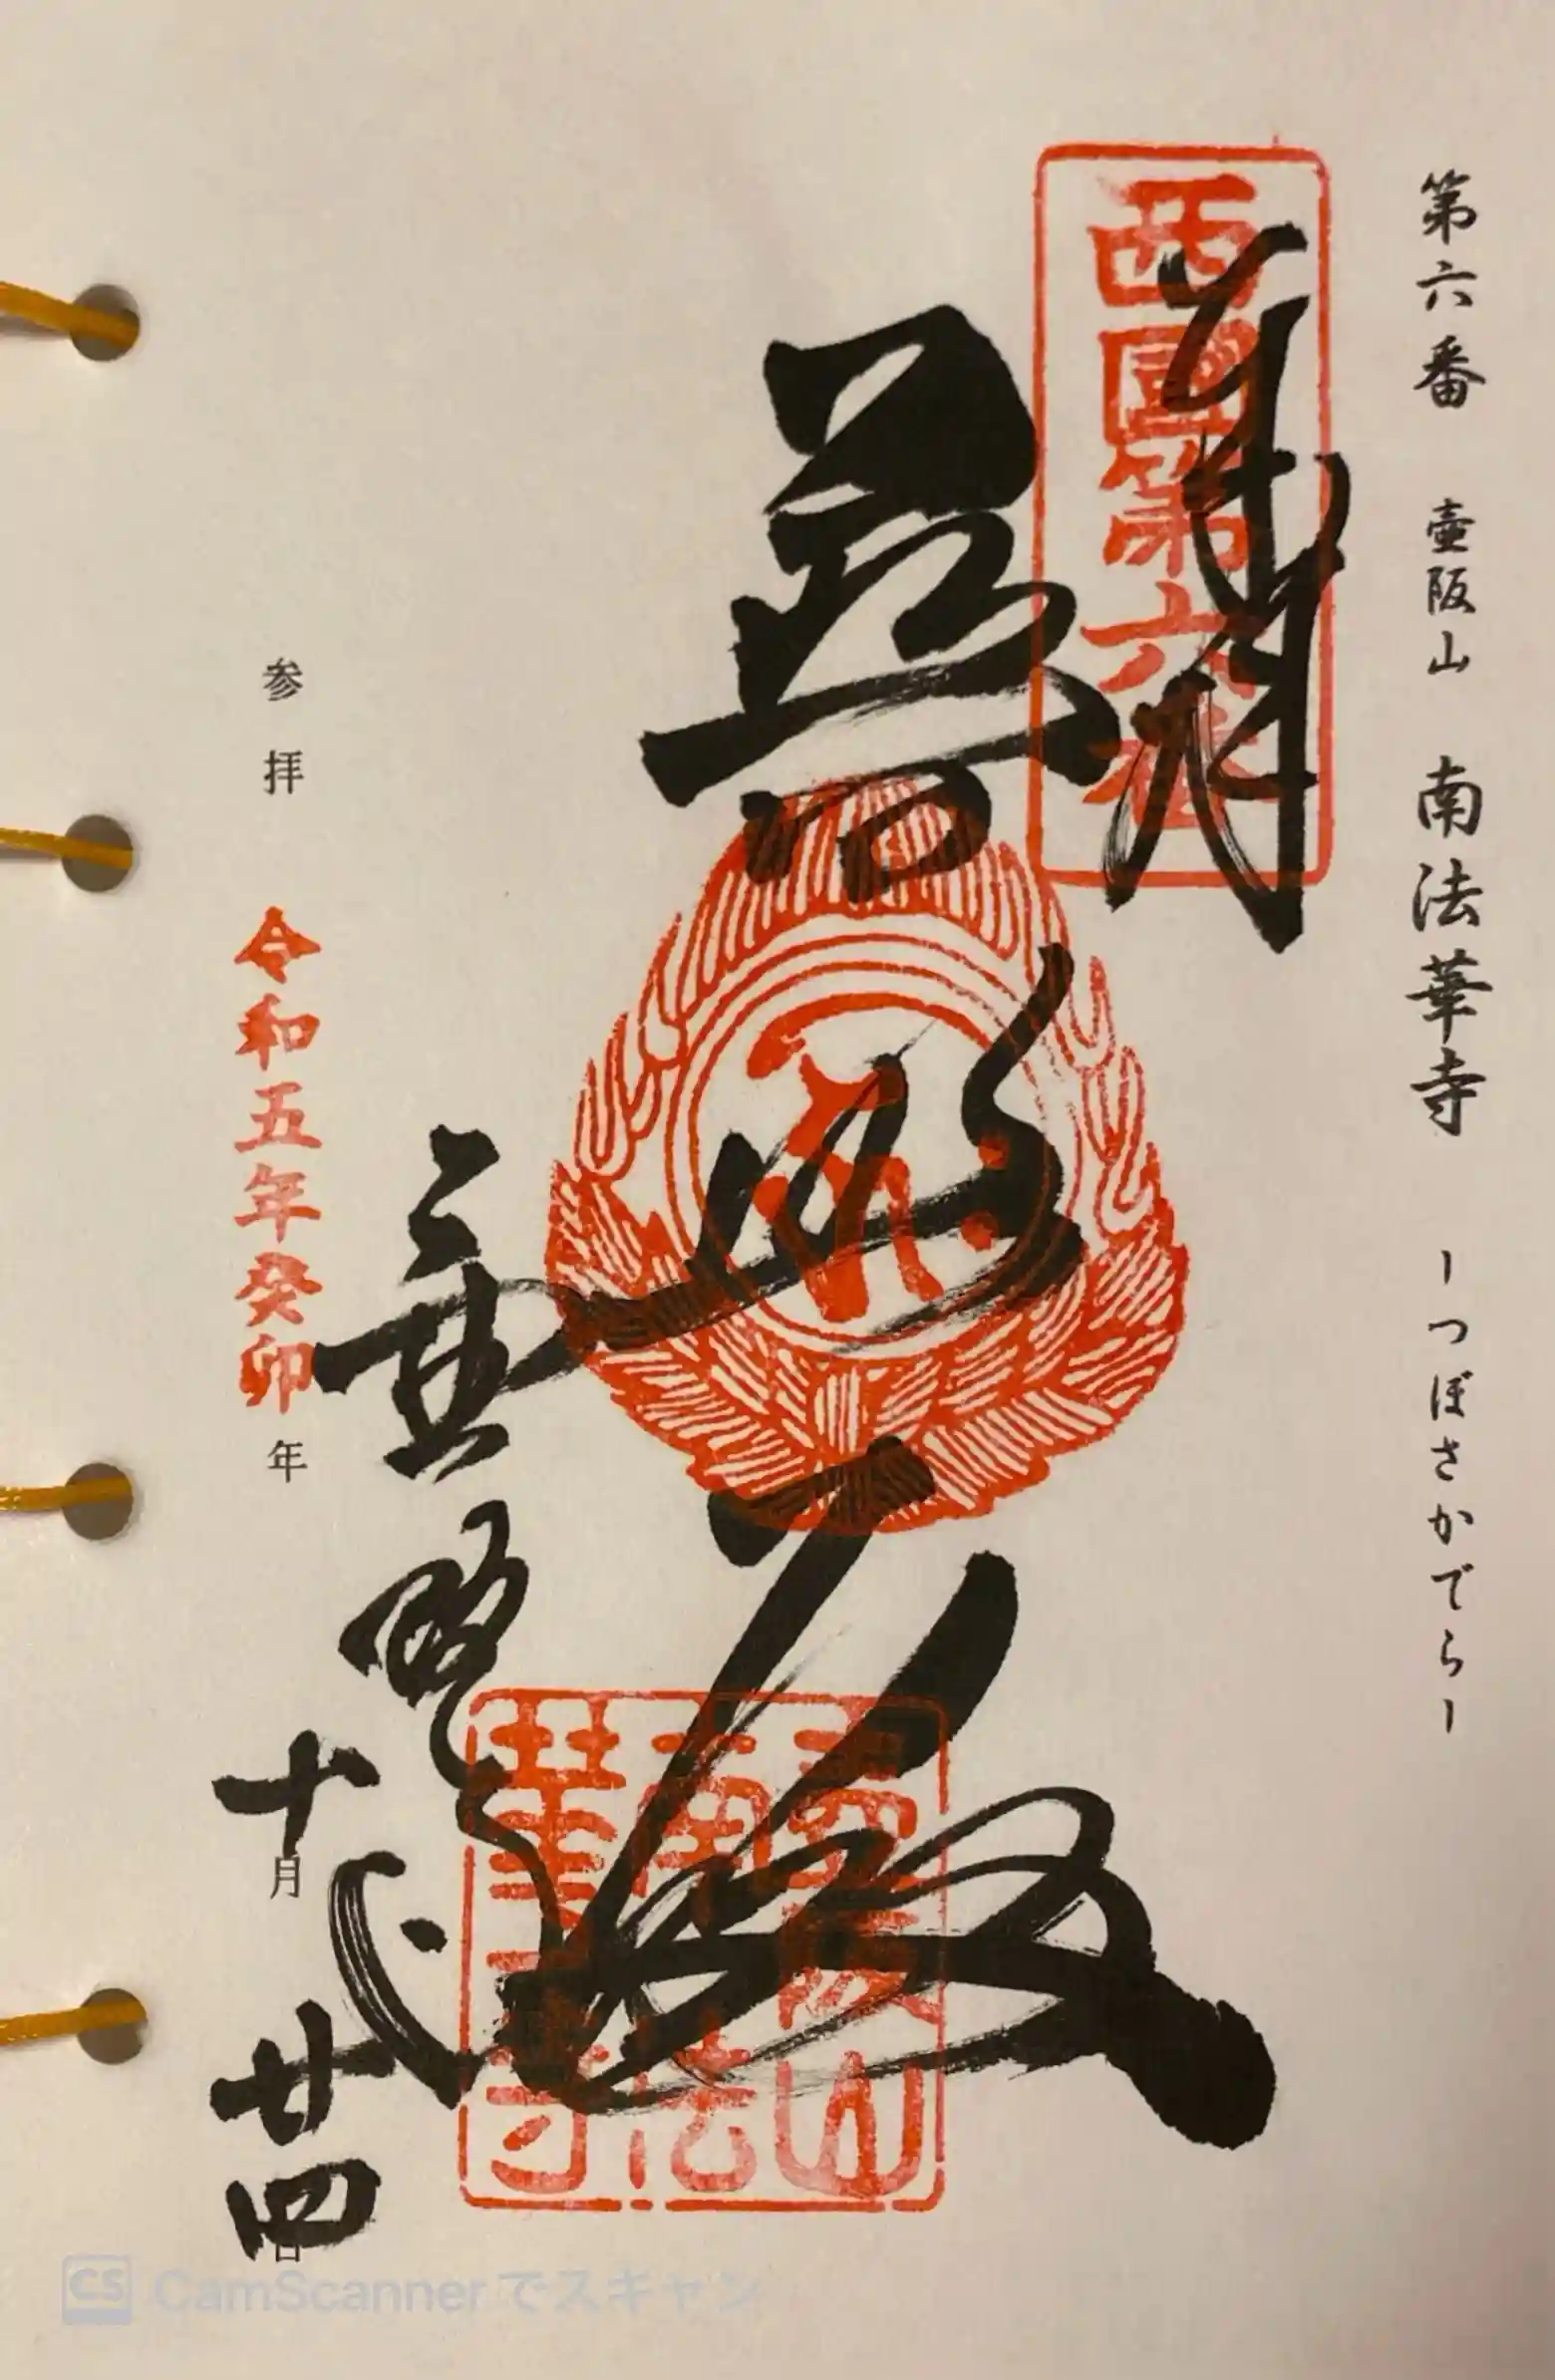 第六番 壷阪山 南法華寺 ーつぼさかでらー
西國第六番
奉拝
普照殿
壷阪寺
壷阪山
南法
華寺
参拝 令和五年癸卯年 十月廿四日
CS CamScannerでスキャン